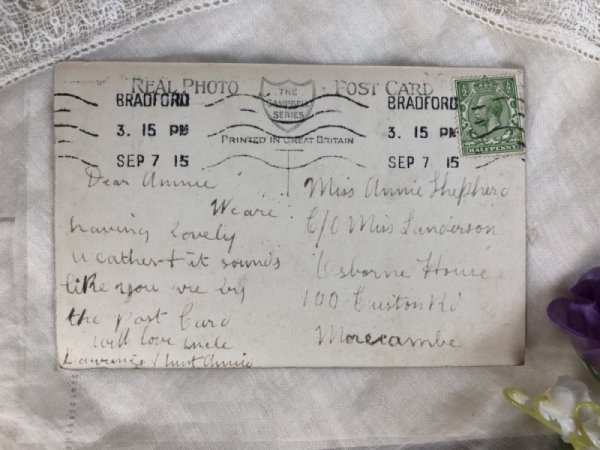 REAL PHOTO THE CAMPBELL SERIES POST CARD
BRADFORD BRADFORD
3. 15 PM 3. 15 PM
PRINTED IN GREAT BRITAIN
SEP 7 15 SEP 7 15
HALFPENNY
Dear Annie
We are
having lovely
weather & it sounds
like you are by
the post Card
will love Uncle
Lawrence & Aunt Annie
Miss Annie Shepherd
C/O Miss Sanderson
Osborne House
100 Euston Rd
Morecambe